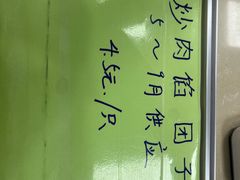 炒肉馅团子
5～9月供应
4.5元/只